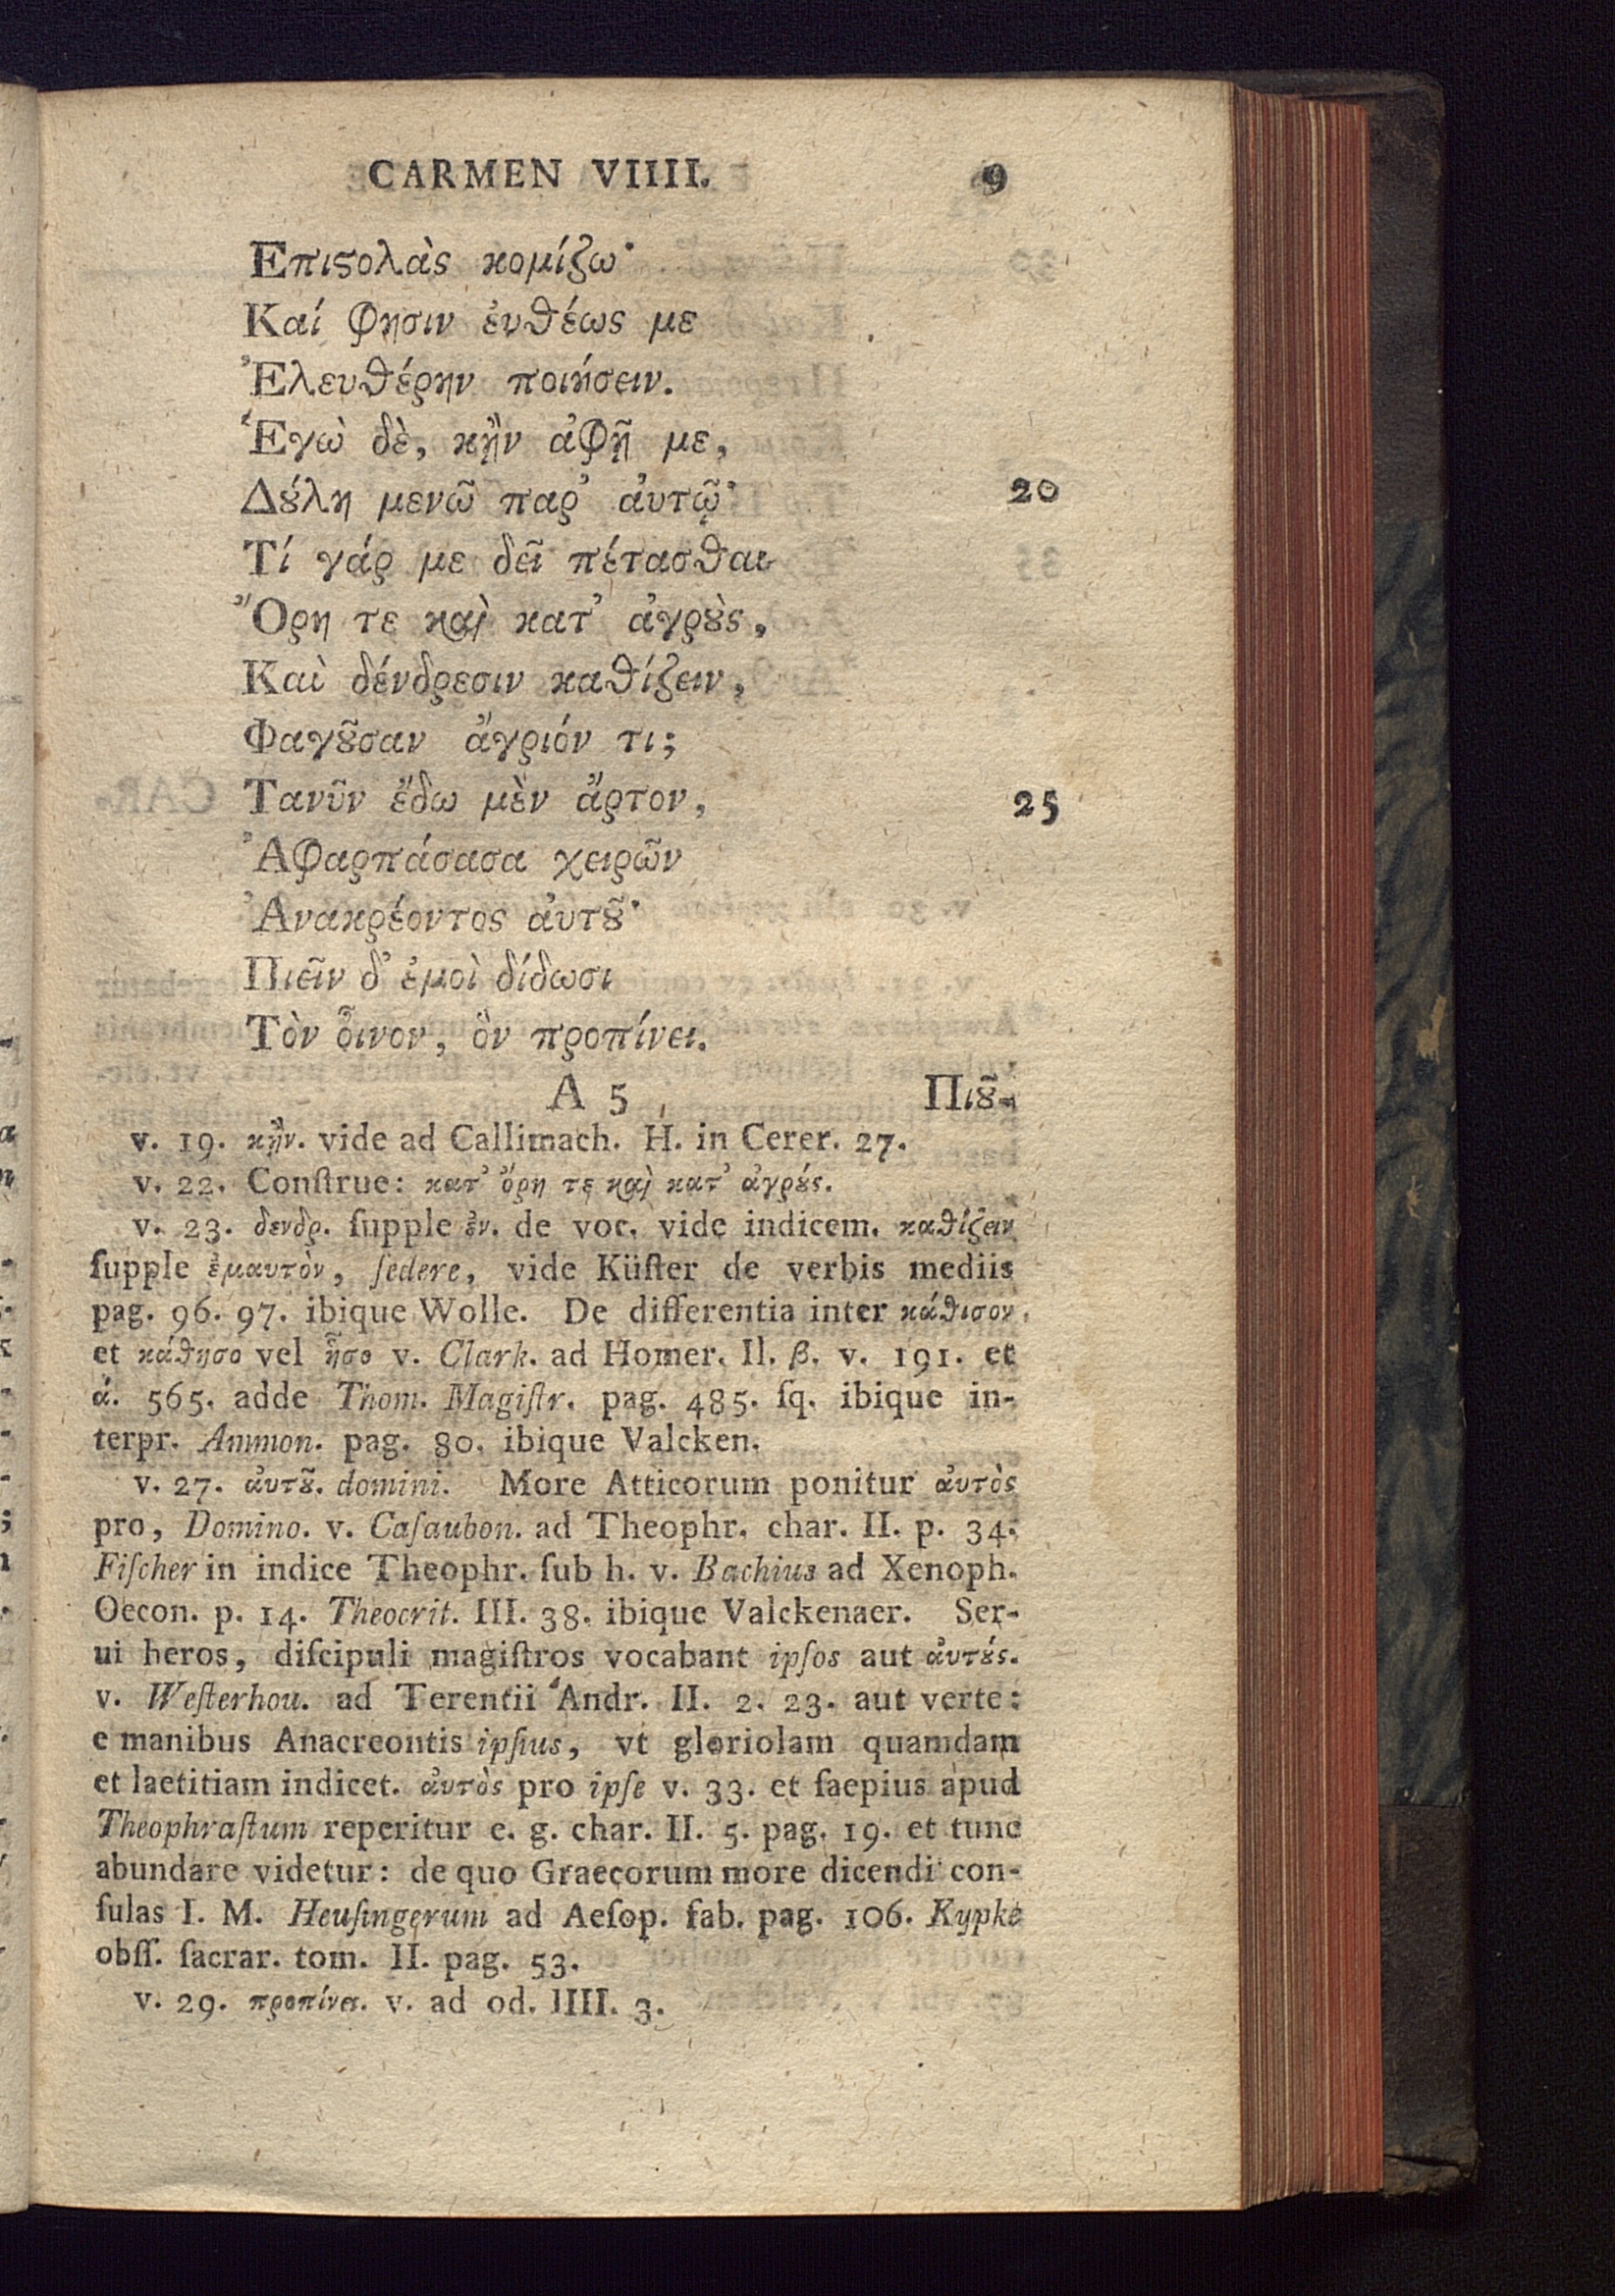 CARMEN VIIII. 9
Επιϛολὰς κομίζω·
Καί φησιν ἐυθέως με
Ἐλευθέρην ποιήσειν.
Ἐγὼ δὲ, κἢν ἀφῇ με,
Δȣ́λη μενῶ παρ᾽ ἀυτῷ· 20
Τί γάρ με δεῖ πέτασθαι
Ὄρη τε καὶ κατ᾽ ἀγρȣ̀ς,
Καὶ δένδρεσιν καθίζειν,
Φαγȣ͂σαν ἄγριόν τι;
Τανῦν ἔδω μὲν ἄρτον, 25
Ἀφαρπάσασα χειρῶν
Ἀνακρέοντος ἀυτȣ͂·
Πιεῖν δ᾽ ἐμοὶ δίδωσι
Τὸν ὦινον, ὃν προπίνει.
A 5 Πιȣ͂-
v. 19. κἢν. vide ad Callimach. H. in Cerer. 27.
v. 22. Conſtrue: κατ᾽ ὄρη τε καὶ κατ᾽ ἀγρȣ́ς.
v. 23. δενδρ. ſupple ἐν. de voc. vide indicem. καθίζειν
ſupple ἐμαυτὸν, ſedere, vide Küſter de verbis mediis
pag. 96. 97. ibique Wolle. De differentia inter κάθισον
et κάθησο vel ἧσο v. Clark. ad Homer. Il. β. v. 191. et
ά. 565. adde Thom. Magiſtr. pag. 485. ſq. ibique in-
terpr. Ammon. pag. 80. ibique Valcken.
v. 27. ἀυτȣ͂. domini. More Atticorum ponitur ἀυτὸς
pro, Domino. v. Caſaubon. ad Theophr. char. II. p. 34.
Fiſcher in indice Theophr. ſub h. v. Bachius ad Xenoph.
Oecon. p. 14. Theocrit. III. 38. ibique Valckenaer. Ser-
ui heros, diſcipuli magiſtros vocabant ipſos aut ἀυτȣ́ς.
v. Weſterhou. ad Terentii Andr. II. 2. 23. aut verte:
e manibus Anacreontis ipſius, vt gloriolam quamdam
et laetitiam indicet. ἀυτὸς pro ipſe v. 33. et ſaepius apud
Theophraſtum reperitur e. g. char. II. 5. pag. 19. et tunc
abundare videtur: de quo Graecorum more dicendi con-
ſulas I. M. Heuſingerum ad Aeſop. fab. pag. 106. Kypke
obſſ. ſacrar. tom. II. pag. 53.
v. 29. προπίνει. v. ad od. IIII. 3.